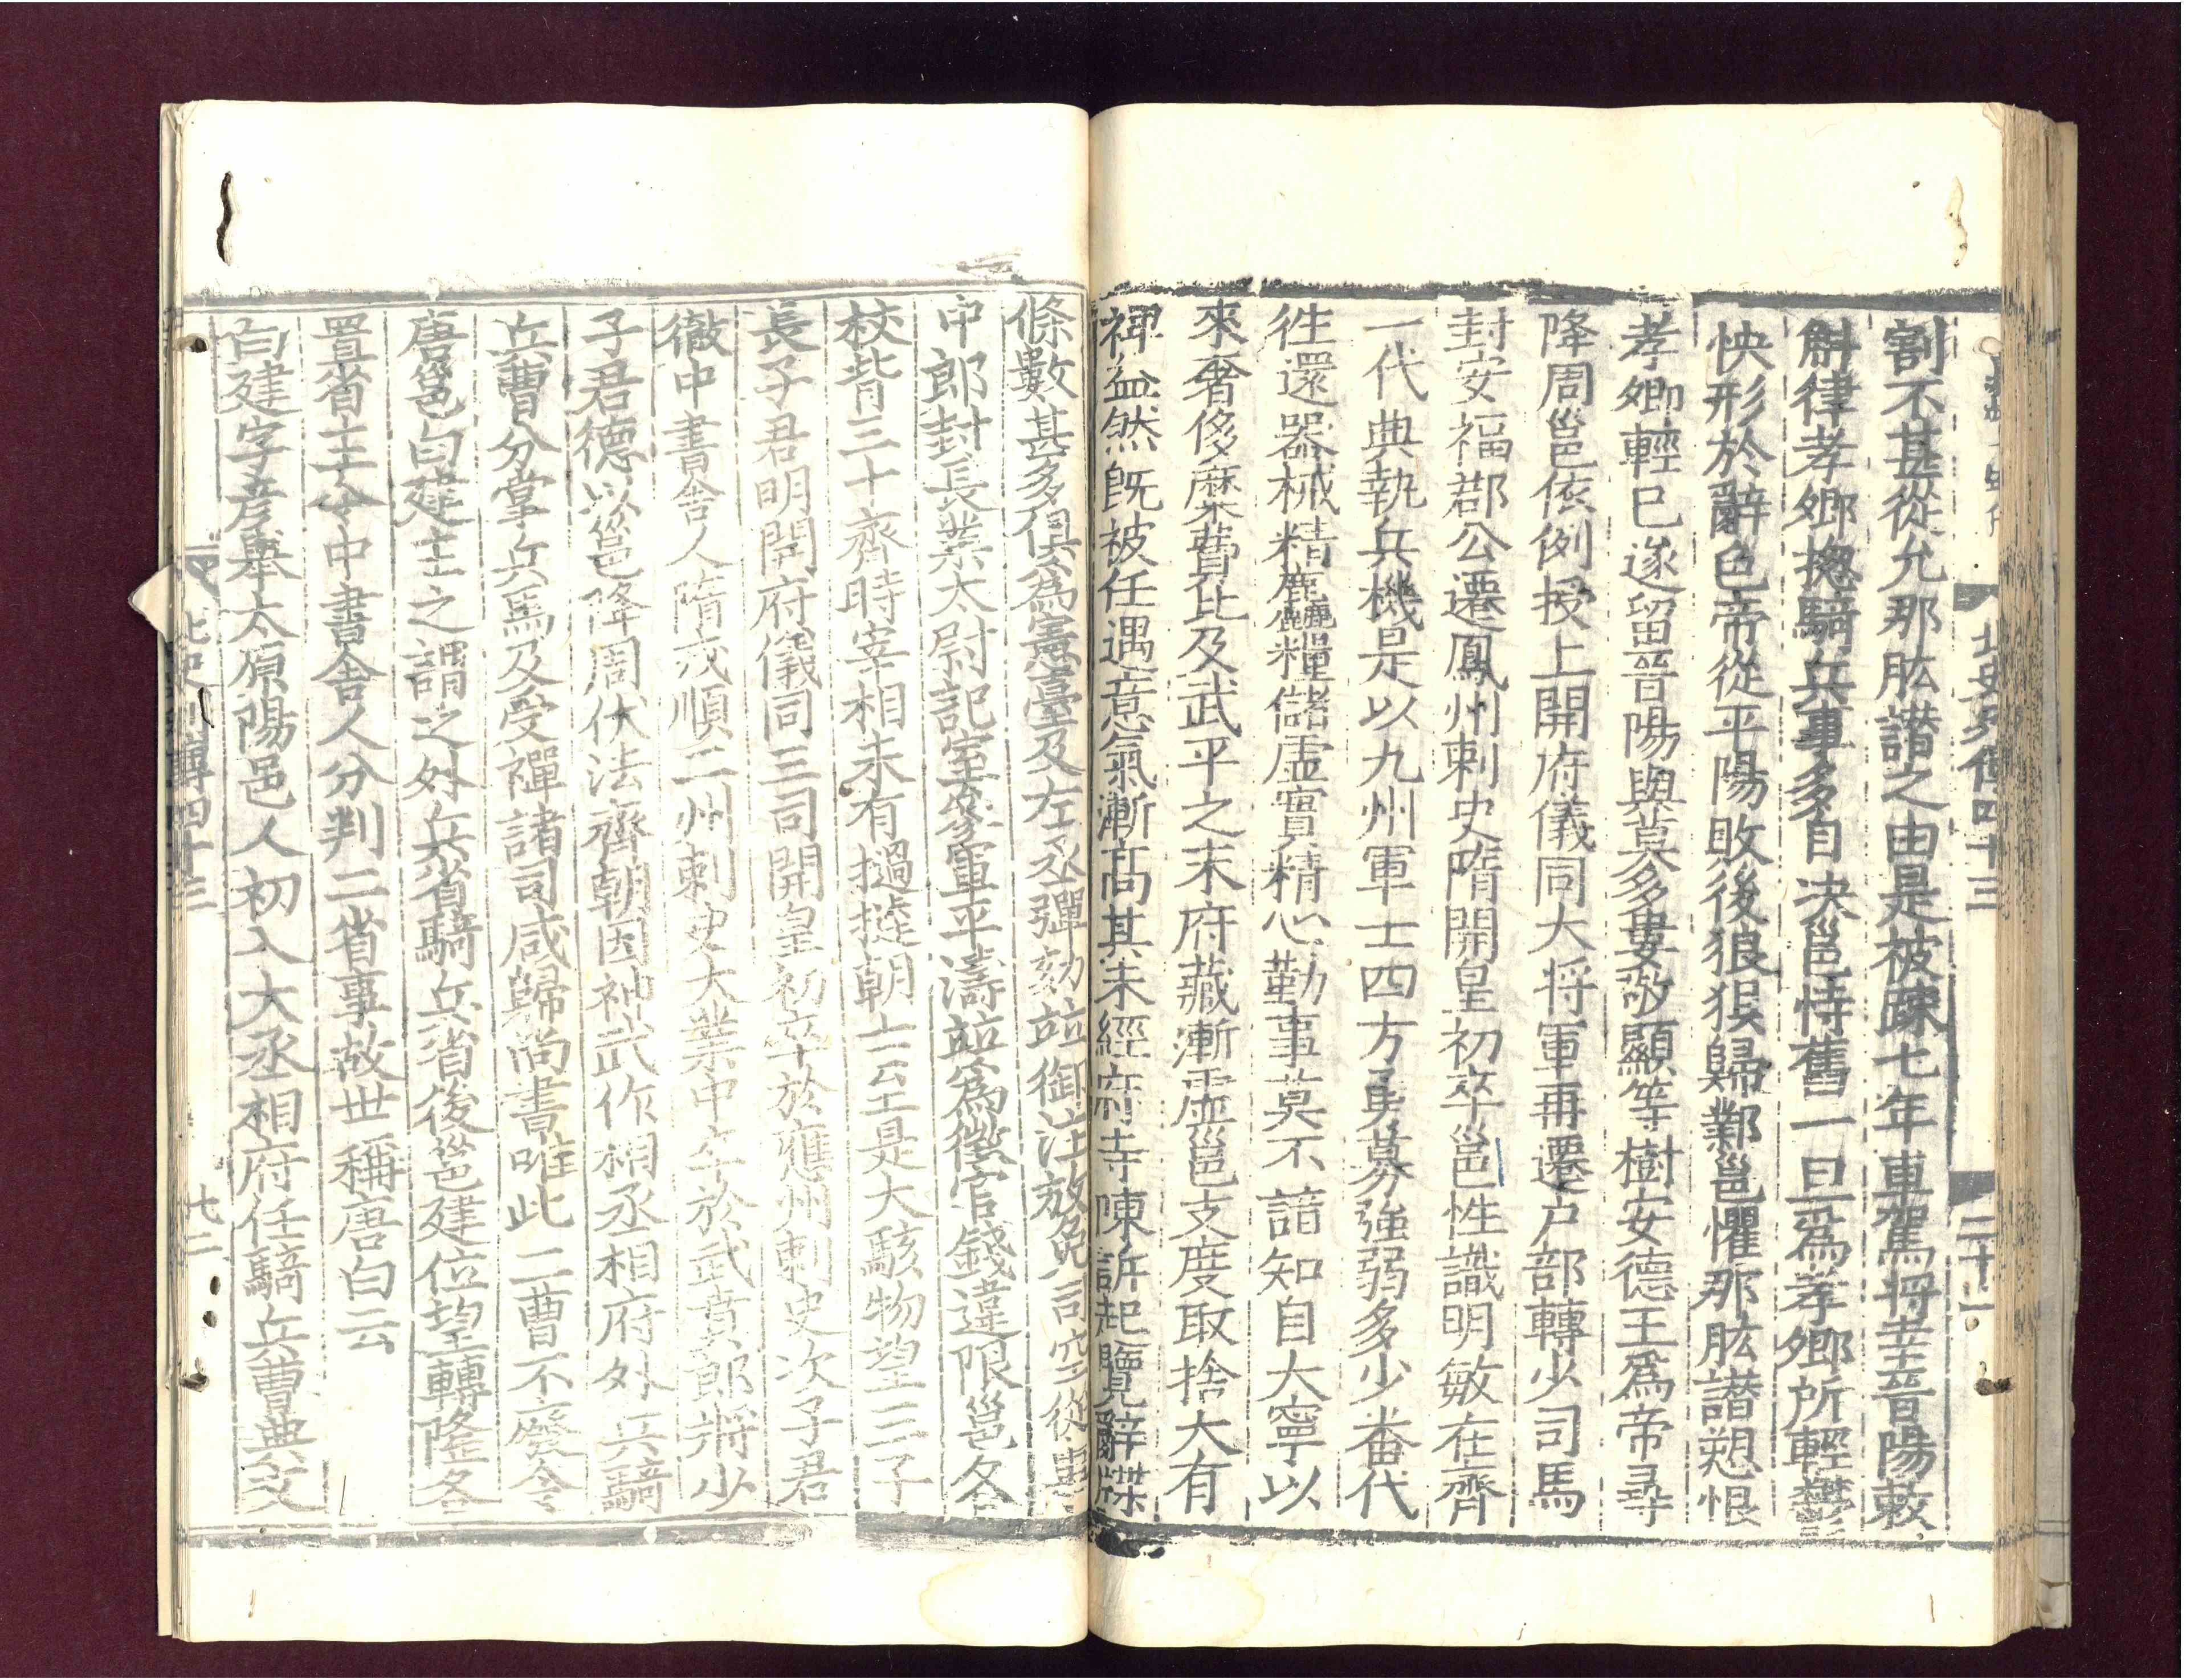 北史列傳四十三 二十一
割不甚從允那肱譖之由是被踈七年車駕将幸晉陽敕
斛律孝卿揔騎兵事多自决邕恃舊一旦爲孝卿所輕鬱
怏形於辭色帝從平陽敗後狼狽歸鄴邕懼那肱譖愬恨
孝卿輕已遂留晉陽與莫多婁敬顯等樹安德王爲帝尋
降周邕依例授上開府儀同大将軍再遷户部轉少司馬
封安福郡公遷鳳州刺史隋開皇初卒邕性識明敏在齊
一代典執兵機是以九州軍士四方勇募強弱多少番代
徃還器械精麤糧儲虚實精心勤事莫不諳知自大寧以
來奢侈糜費比及武平之末府藏漸虚邕支度取捨大有
裨益然旣被任遇意氣漸高其未經府寺陳訴起覽辭牒
條數甚多俱爲憲臺及左丞彈劾竝御注放免司空從事
中郎封長業太尉記室叅軍平濤竝爲徵官錢違限邕各
杖背三十齊時宰相未有撾撻朝士至是大駭物望三子
長子君明開府儀同三司開皇初卒於應州刺史次子君
徹中書舍人隋戎順二州刺史大業中卒於武賁郎將少
子君德以邕降周伏法齊朝因神武作相丞相府外兵騎
兵曹分掌兵馬及受禪諸司咸歸尚書唯此二曹不廢令
唐邕白建主之謂之外兵省騎兵省後邕建位望轉隆各
置省主令中書舍人分判二省事故世稱唐白云
白建字彦舉太原陽邑人初入大丞相府任騎兵曹典文
北史列傳四十三 七二